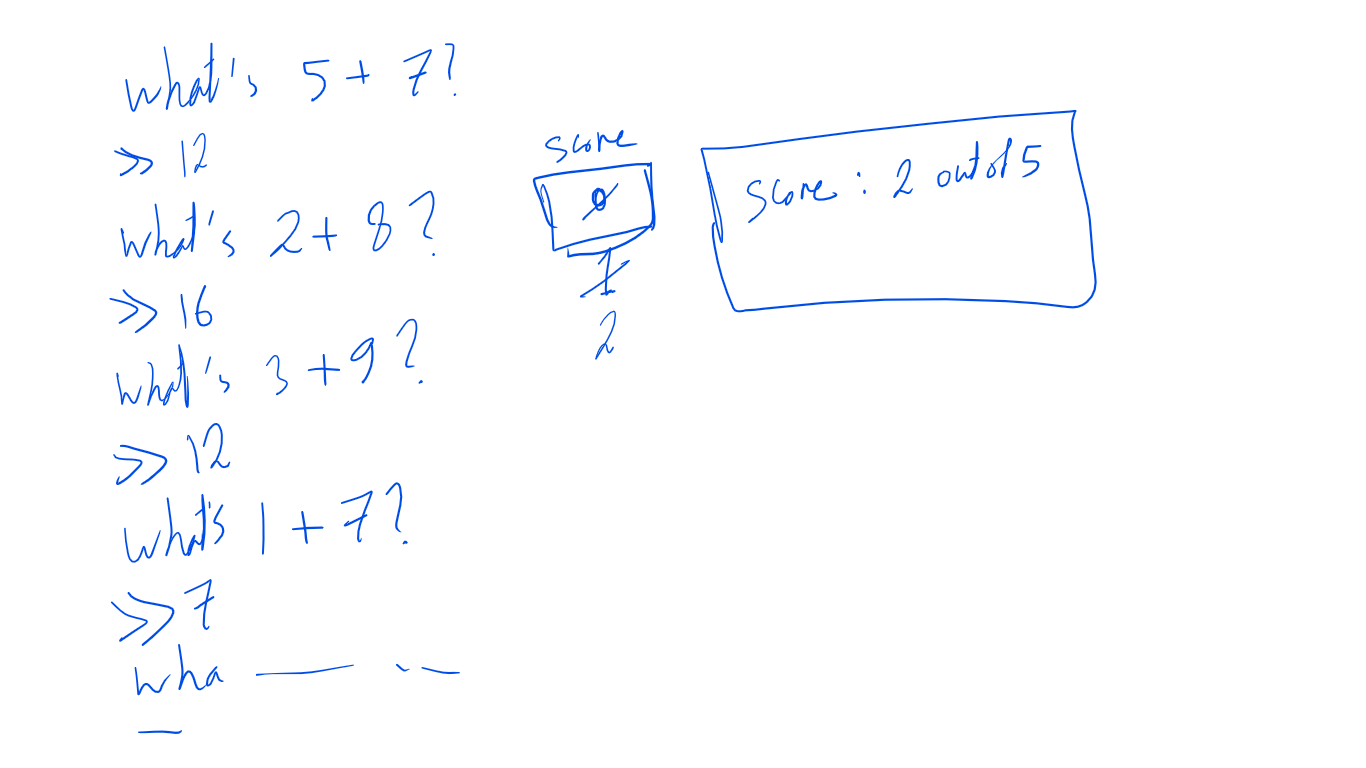 what's 5 + 7?
>> 12
what's 2 + 8?
>> 16
what's 3 + 9?
>> 12
what's 1 + 7?
>> 7
wha
score
0
1
2
score : 2 out of 5